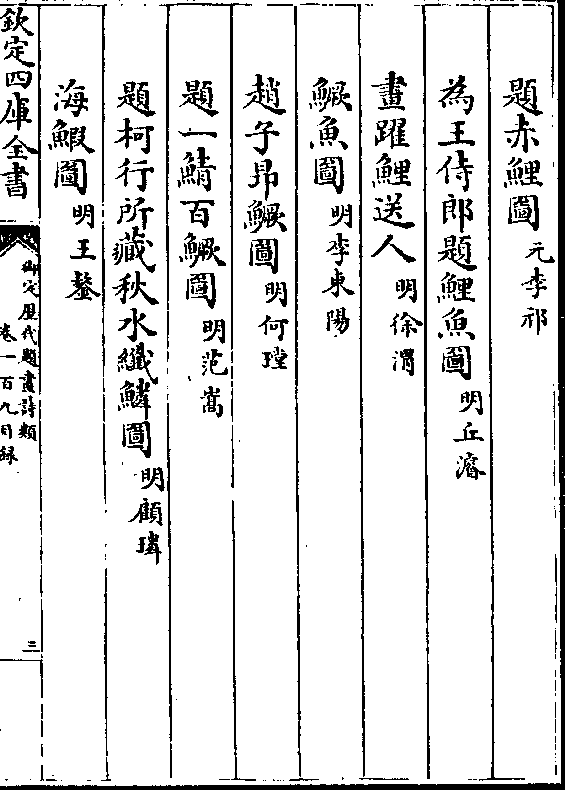 題赤鯉圖 元李祁
為王侍郎題鯉魚圖 明丘濬
畫躍鯉送人 明徐渭
鱖魚圖 明李東陽
趙子昂鱖圖 明何瑭
題一鯖百鱖圖 明范嵩
題柯行所藏秋水纖鱗圖 明顧璘
海鰕圖 明王鏊
欽定四庫全書
御定歷代題畫詩類
卷一百九目錄
三